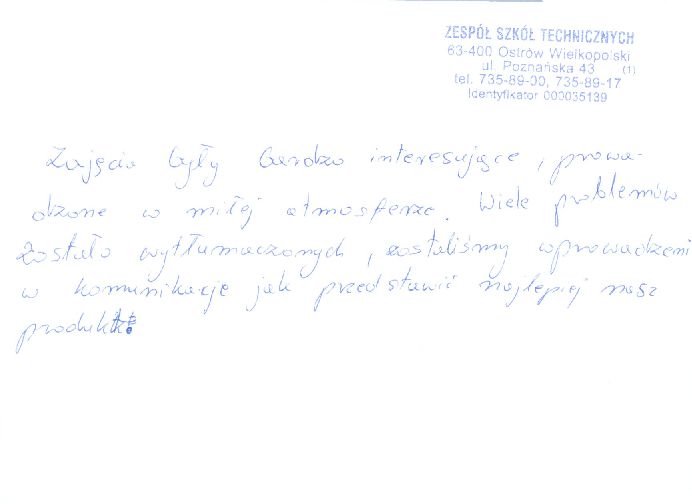 ZESPÓŁ SZKÓŁ TECHNICZNYCH
63-400 Ostrów Wielkopolski
ul. Poznańska 43 (1)
tel. 735-89-00, 735-89-17
Identyfikator 000035139
Zajęcia były bardzo interesujące, prowa-
dzone w miłej atmosferze. Wiele problemów
zostało wytłumaczonych, zostaliśmy wprowadzeni
w komunikację jak przedstawić najlepiej nasz
produkt.